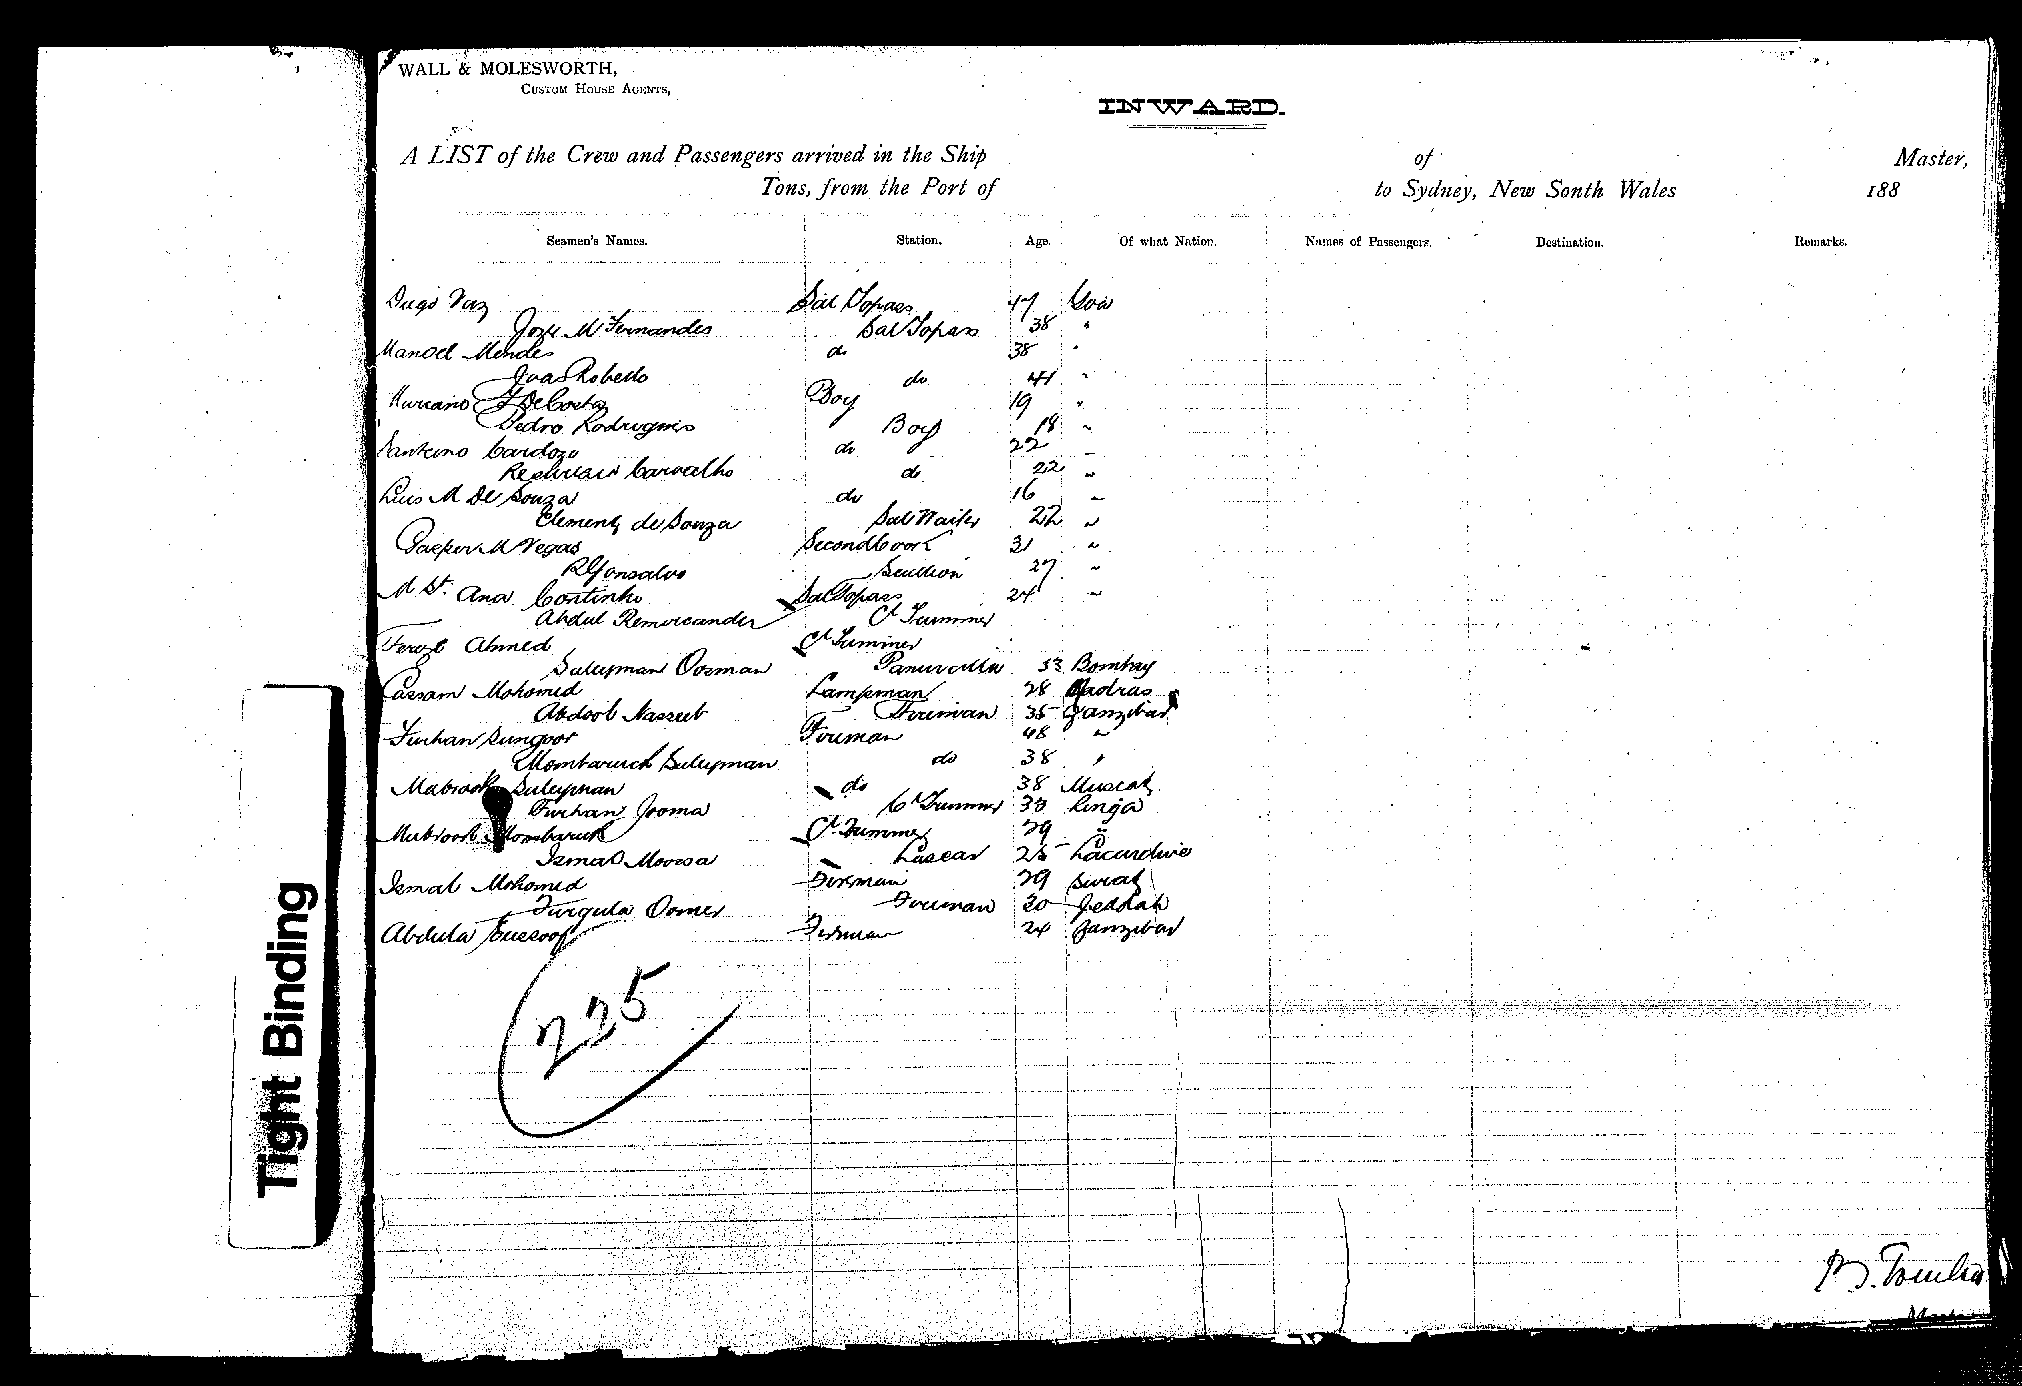 WALL & MOLESWORTH,
CUSTOM HOUSE AGENTS,
INWARD.
A LIST of the Crew and Passengers arrived in the Ship of Master,
Tons, from the Port of to Sydney, New South Wales 188
Seamen's Names. Station. Age. Of what Nation. Names of Passengers. Destination. Remarks.
Diego Vaz Sal Topass 47 Goa
Jose M Fernandes Sal Topass 38 "
Manoel Mendes do 38 "
Joas Robello do 41 "
Marciano F DeCosta Boy 19 "
Pedro Rodrigues Boy 18 "
Cardozo do 22 "
Carvalho do 22 "
Luis M De Souza do 16 "
Clement de Souza Sal Waiter 22 "
M Vegas Second Cook 31 "
R Gonsalvo Scullion 27 "
M St. Ana Coutinho Sal Topass 24 "
Abdul Cl Trimmer
Feroze Ahmed Cl Trimmer
Suleyman Oosman 33 Bombay
Cassam Mohomed Lampman 28 Madras
Abdool Nasseeb Fireman 35 Zanzibar
Furhan Sungoor Fireman 48 "
Mombaruck Suleyman do 38 "
Mabrook Suleyman do 38 Muscat
Furhan Jooma Cl Trimmer 30 Linga
Mabrook Mombaruck Cl Trimmer 29 "
Ismal Moosa Lascar 25 Lacardive
Ismal Mohomed Fireman 29 Surat
Furgula Oomer Fireman 30 Jeddah
Abdula Eussoof Fireman 24 Zanzibar
225
Tight Binding